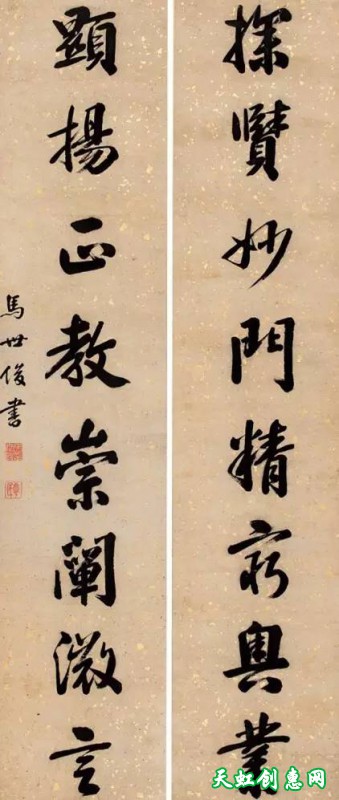 探賾妙門精窮奧業
顯揚正教崇闡微言
馬世俊書
天虹创惠网